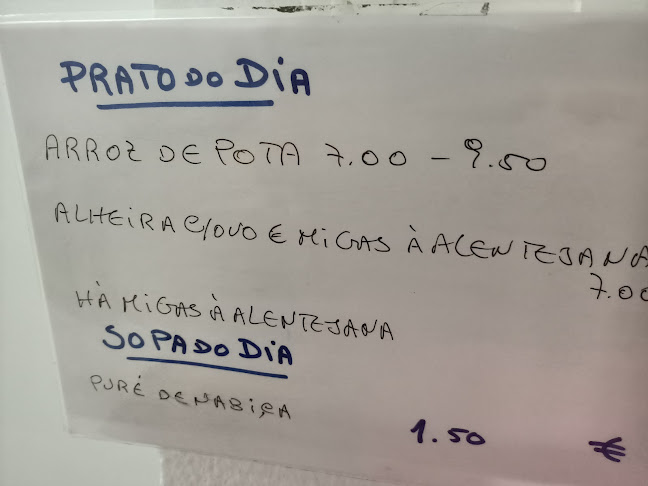 PRATO DO DIA
ARROZ DE POTA 7.00 - 9.50
ALHEIRA C/OVO E MIGAS À ALENTEJANA
7.00
HÀ MIGAS À ALENTEJANA
SOPA DO DIA
PURÉ DE NABIÇA
1.50 €